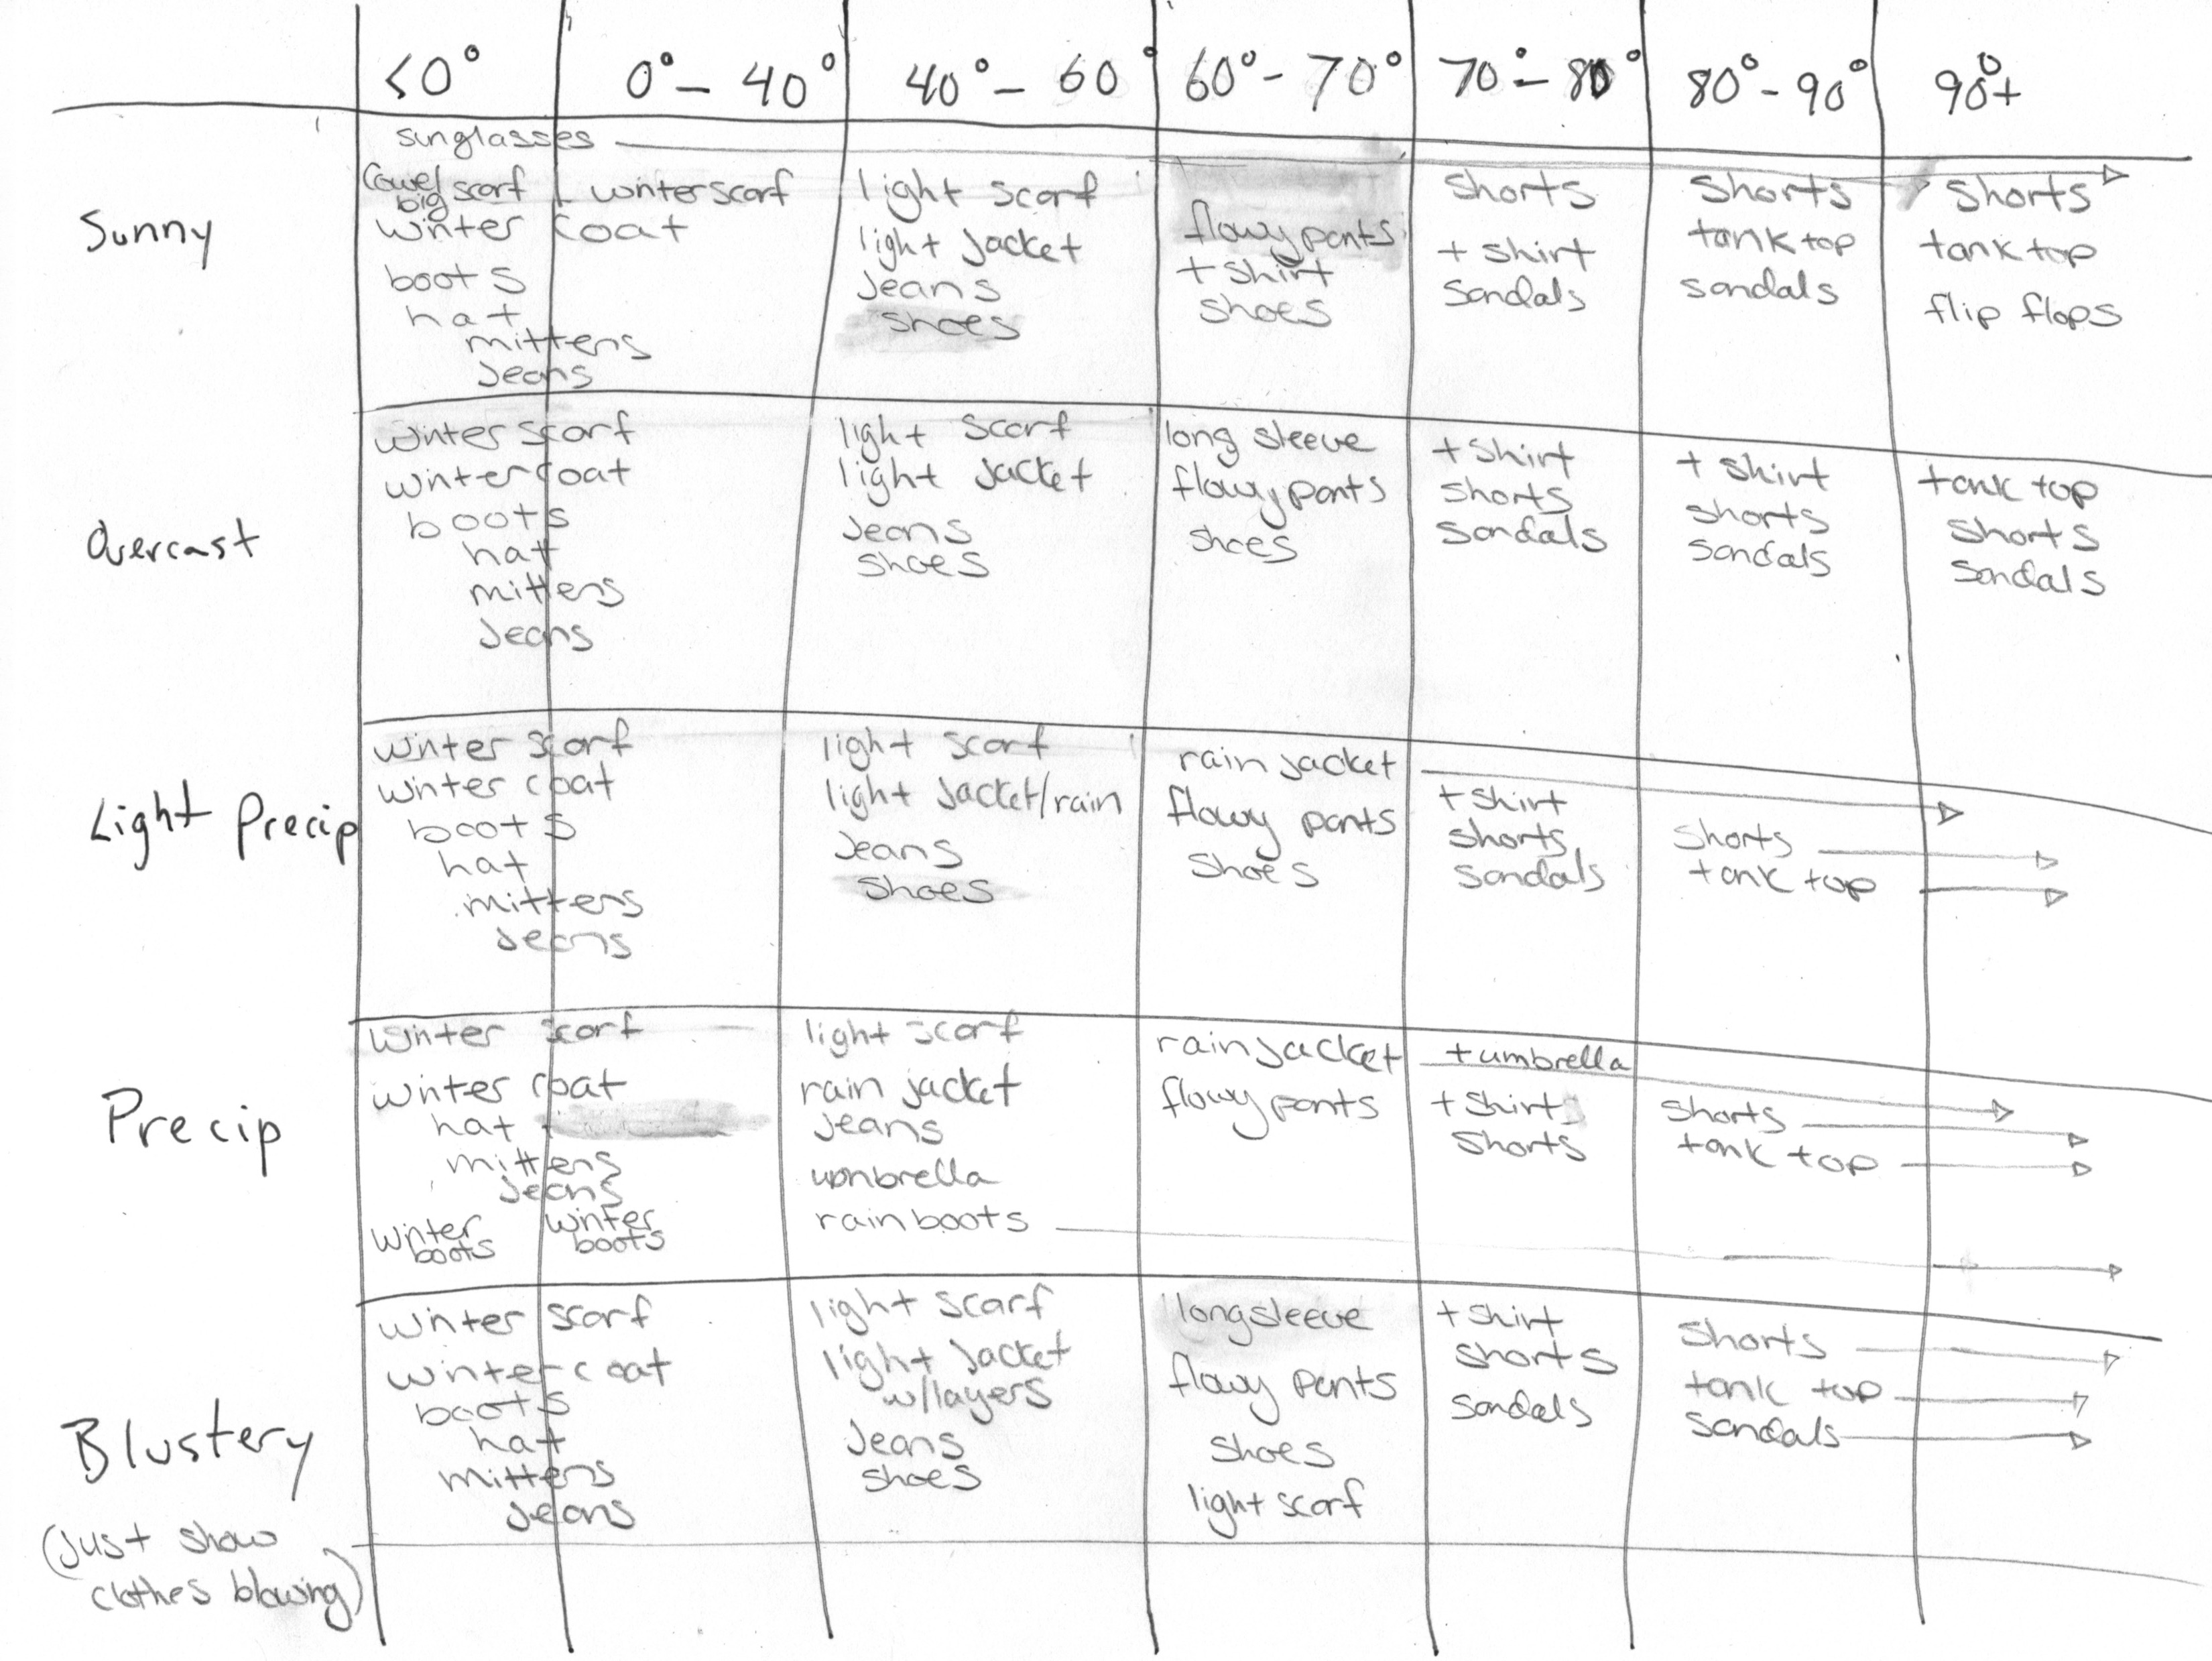 <0° 0°-40° 40°-60° 60°-70° 70°-80° 80°-90° 90°+
Sunny
sunglasses
Cowel/big scarf
winter scarf
winter coat
boots
hat
mittens
jeans
light scarf
light jacket
jeans
shoes
flowy pants
t shirt
shoes
shorts
t shirt
sandals
shorts
tank top
sandals
shorts
tank top
flip flops
Overcast
winter scarf
winter coat
boots
hat
mittens
jeans
light scarf
light jacket
jeans
shoes
long sleeve
flowy pants
shoes
t shirt
shorts
sandals
t shirt
shorts
sandals
tank top
shorts
sandals
Light Precip
winter scarf
winter coat
boots
hat
mittens
jeans
light scarf
light jacket/rain
jeans
shoes
rain jacket
flowy pants
shoes
t shirt
shorts
sandals
shorts
tank top
Precip
winter scarf
winter coat
hat
mittens
jeans
winter
boots
winter
boots
light scarf
rain jacket
jeans
umbrella
rain boots
rain jacket
flowy pants
+umbrella
t shirt
shorts
shorts
tank top
Blustery
(just show
clothes blowing)
winter scarf
winter coat
boots
hat
mittens
jeans
light scarf
light jacket
w/layers
jeans
shoes
long sleeve
flowy pants
shoes
light scarf
t shirt
shorts
sandals
shorts
tank top
sandals